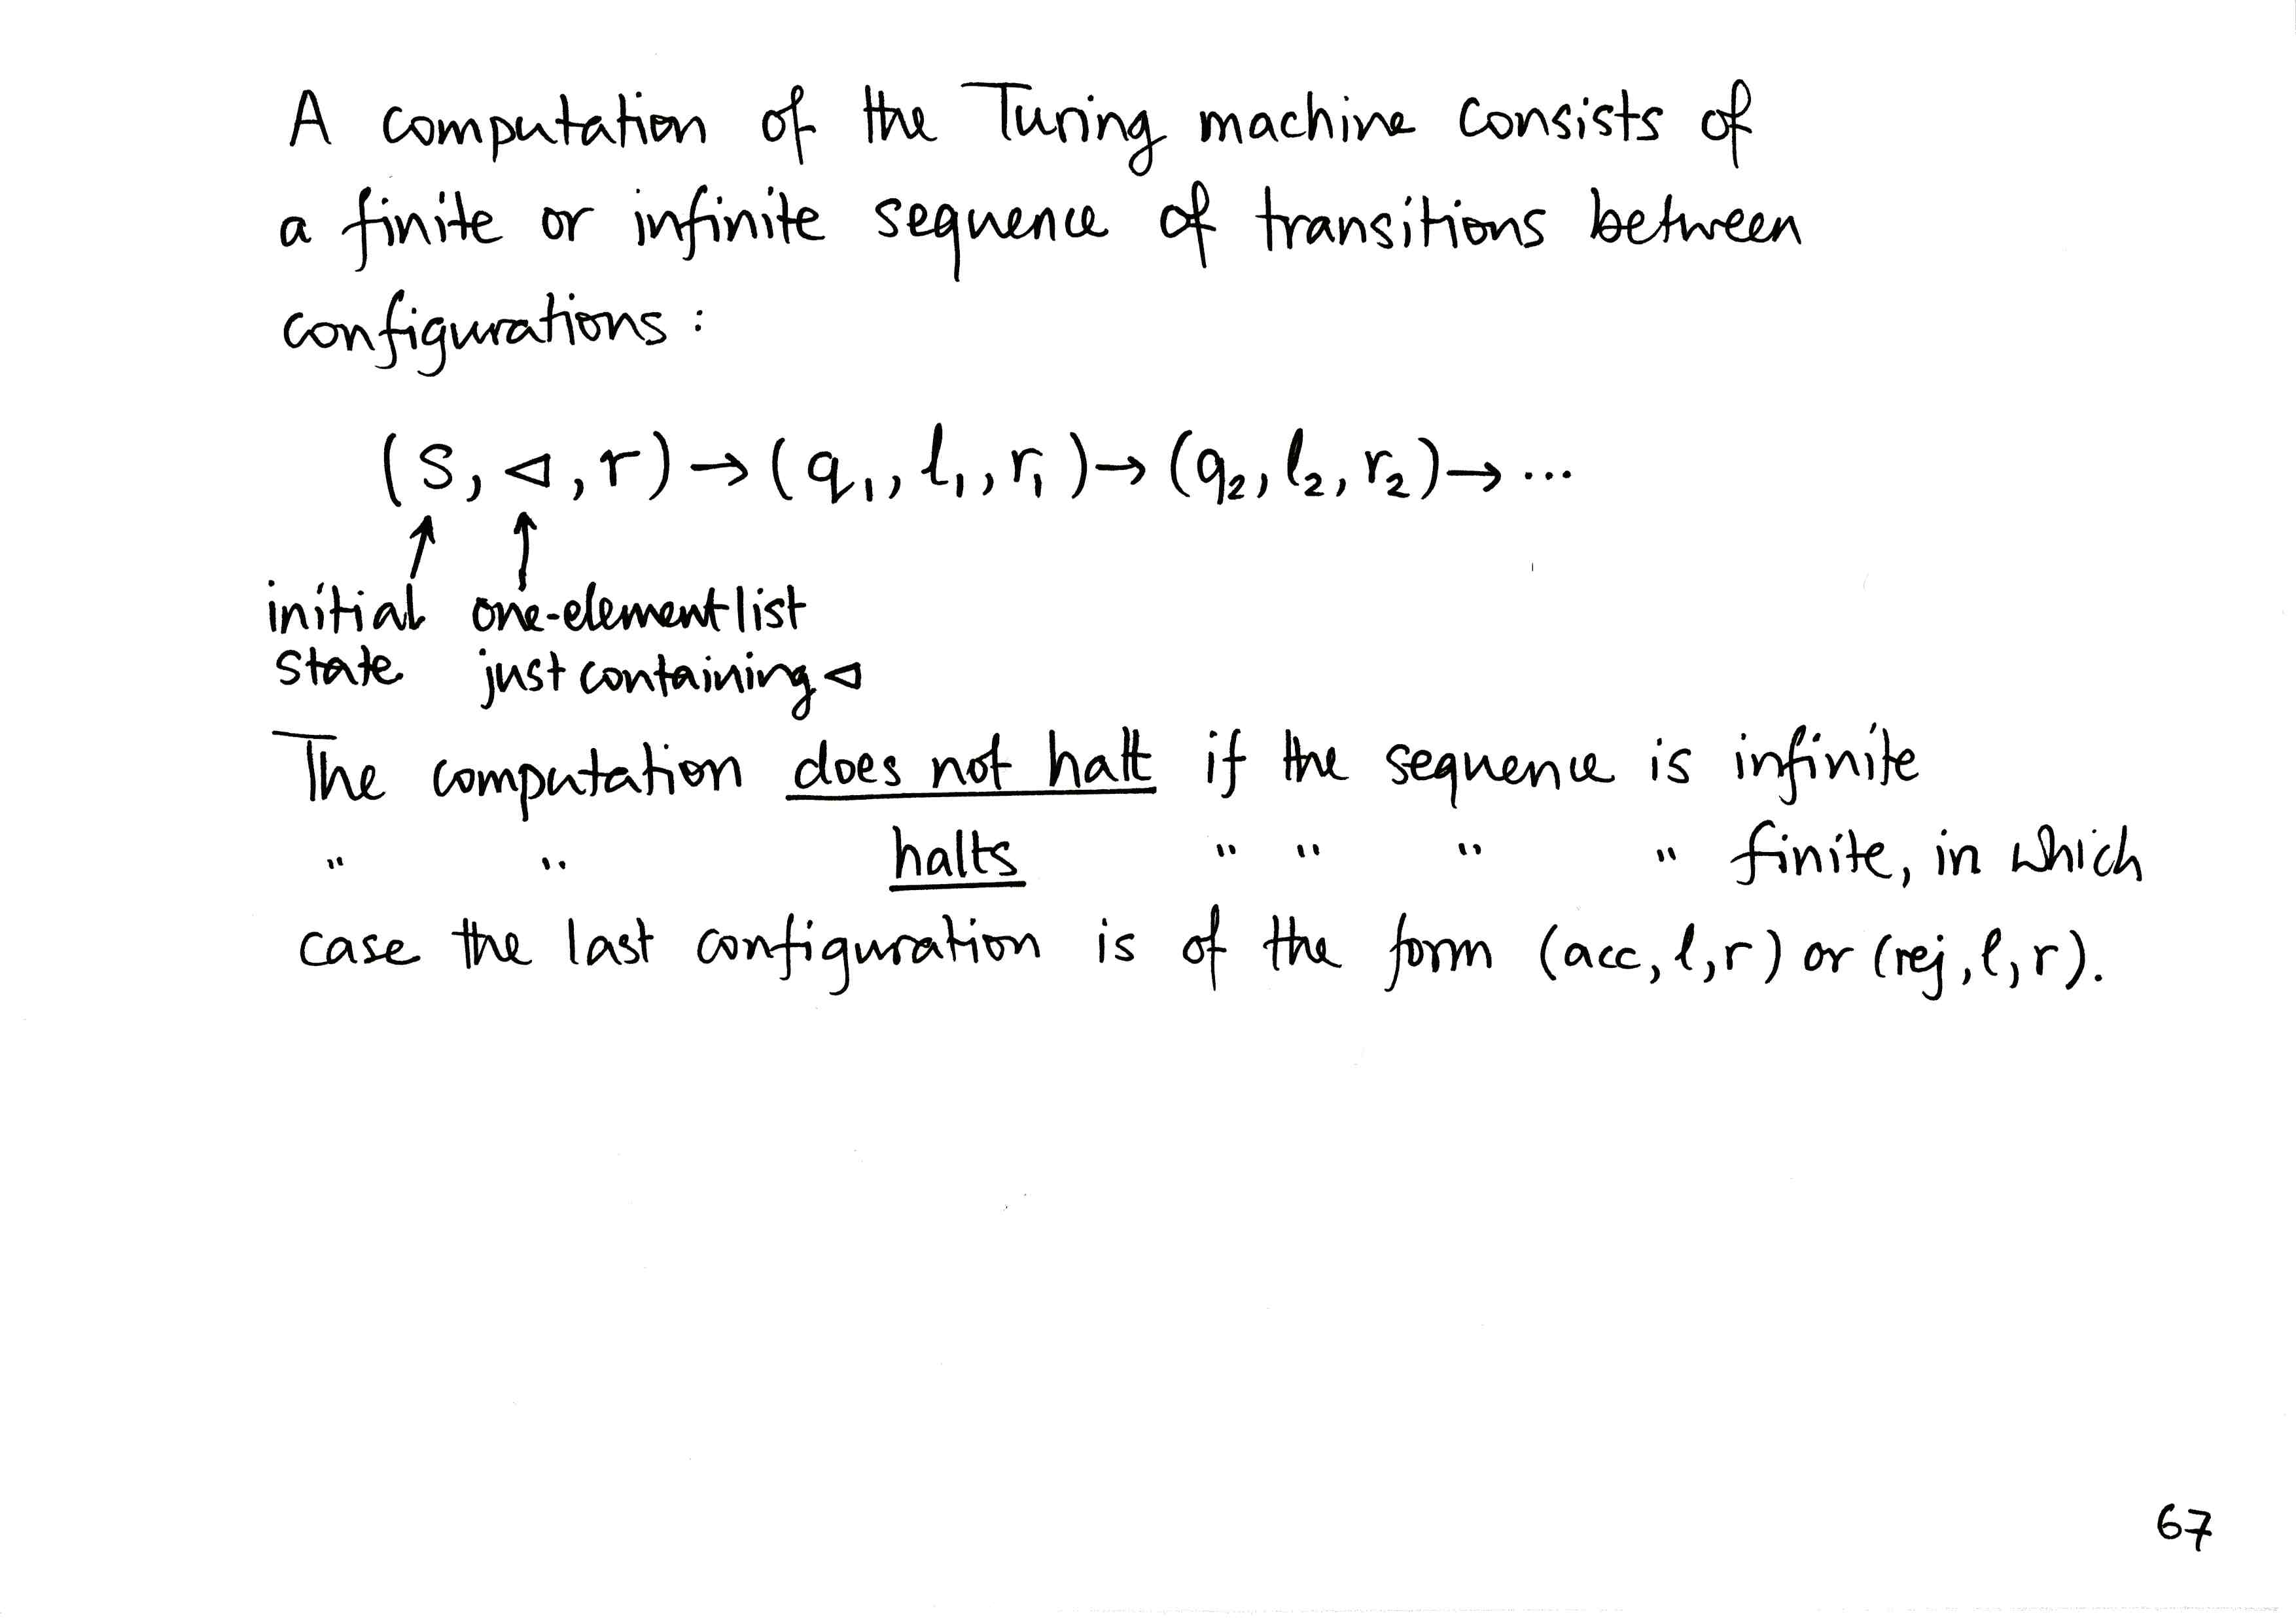 A computation of the Turing machine consists of
a finite or infinite sequence of transitions between
configurations:
(s, ⊲, r) → (q₁, l₁, r₁) → (q₂, l₂, r₂) → ...
initial one-element list
state just containing ⊲
The computation does not halt if the sequence is infinite
" " halts " " " " finite, in which
case the last configuration is of the form (acc, l, r) or (rej, l, r).
67